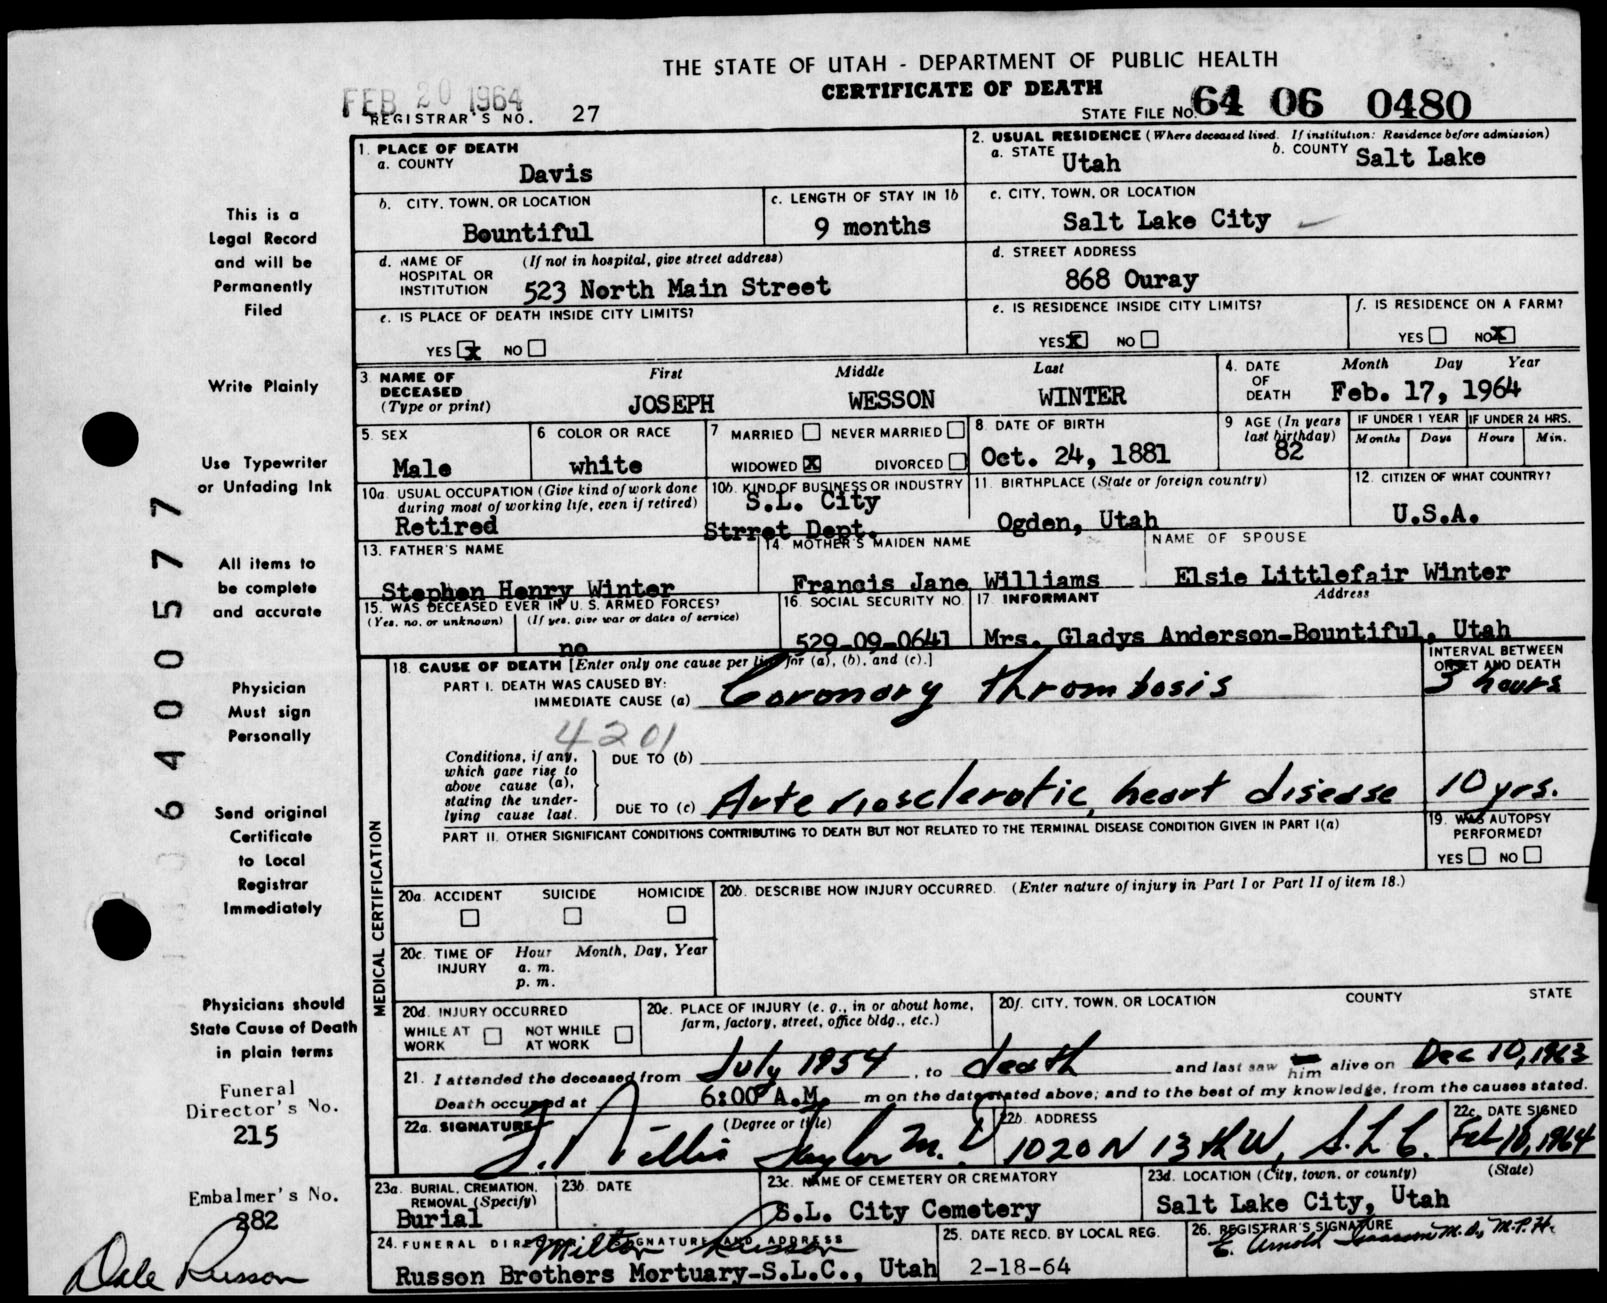 THE STATE OF UTAH - DEPARTMENT OF PUBLIC HEALTH
CERTIFICATE OF DEATH
FEB 20 1964
REGISTRAR'S NO. 27
STATE FILE NO. 64 06 0480
1. PLACE OF DEATH
a. COUNTY
Davis
2. USUAL RESIDENCE (Where deceased lived. If institution: Residence before admission)
a. STATE Utah
b. COUNTY Salt Lake
b. CITY, TOWN, OR LOCATION
Bountiful
c. LENGTH OF STAY IN 1b
9 months
c. CITY, TOWN, OR LOCATION
Salt Lake City
d. NAME OF HOSPITAL OR INSTITUTION
(If not in hospital, give street address)
523 North Main Street
d. STREET ADDRESS
868 Ouray
e. IS PLACE OF DEATH INSIDE CITY LIMITS?
YES X NO
e. IS RESIDENCE INSIDE CITY LIMITS?
YES X NO
f. IS RESIDENCE ON A FARM?
YES NO X
3 NAME OF DECEASED
(Type or print)
First Middle Last
JOSEPH WESSON WINTER
4. DATE OF DEATH
Month Day Year
Feb. 17, 1964
5. SEX
Male
6 COLOR OR RACE
white
7 MARRIED NEVER MARRIED
WIDOWED X DIVORCED
8. DATE OF BIRTH
Oct. 24, 1881
9 AGE (In years last birthday)
82
IF UNDER 1 YEAR
Months Days
IF UNDER 24 HRS.
Hours Min.
10a. USUAL OCCUPATION (Give kind of work done during most of working life, even if retired)
Retired
10b. KIND OF BUSINESS OR INDUSTRY
S.L. City
Strret Dept.
11. BIRTHPLACE (State or foreign country)
Ogden, Utah
12. CITIZEN OF WHAT COUNTRY?
U.S.A.
13. FATHER'S NAME
Stephen Henry Winter
14. MOTHER'S MAIDEN NAME
Francis Jane Williams
NAME OF SPOUSE
Elsie Littlefair Winter
15. WAS DECEASED EVER IN U. S. ARMED FORCES?
(Yes, no, or unknown) (If yes, give war or dates of service)
no
16. SOCIAL SECURITY NO.
529-09-0641
17. INFORMANT Address
Mrs. Gladys Anderson-Bountiful, Utah
MEDICAL CERTIFICATION
18. CAUSE OF DEATH [Enter only one cause per line for (a), (b), and (c).]
INTERVAL BETWEEN ONSET AND DEATH
PART I. DEATH WAS CAUSED BY:
IMMEDIATE CAUSE (a) Coronary thrombosis
3 hours
4201
Conditions, if any, which gave rise to above cause (a), stating the underlying cause last.
DUE TO (b)
DUE TO (c) Arteriosclerotic heart disease
10 yrs.
PART II. OTHER SIGNIFICANT CONDITIONS CONTRIBUTING TO DEATH BUT NOT RELATED TO THE TERMINAL DISEASE CONDITION GIVEN IN PART I(a)
19. WAS AUTOPSY PERFORMED?
YES NO
20a. ACCIDENT SUICIDE HOMICIDE
20b. DESCRIBE HOW INJURY OCCURRED. (Enter nature of injury in Part I or Part II of item 18.)
20c. TIME OF INJURY
Hour Month, Day, Year
a. m.
p. m.
20d. INJURY OCCURRED
WHILE AT WORK NOT WHILE AT WORK
20e. PLACE OF INJURY (e. g., in or about home, farm, factory, street, office bldg., etc.)
20f. CITY, TOWN, OR LOCATION COUNTY STATE
21. I attended the deceased from July 1954, to death and last saw him alive on Dec 10, 1963
Death occurred at 6:00 A.M. m on the date stated above; and to the best of my knowledge, from the causes stated.
22a. SIGNATURE (Degree or title)
Taylor M.D.
22b. ADDRESS
1020 N 13th W, S.L.C.
22c. DATE SIGNED
Feb 18, 1964
23a. BURIAL, CREMATION, REMOVAL (Specify)
Burial
23b DATE
23c. NAME OF CEMETERY OR CREMATORY
S.L. City Cemetery
23d. LOCATION (City, town, or county) (State)
Salt Lake City, Utah
24. FUNERAL DIRECTOR'S SIGNATURE AND ADDRESS
Milton Russon
Russon Brothers Mortuary-S.L.C., Utah
25. DATE RECD. BY LOCAL REG.
2-18-64
26. REGISTRAR'S SIGNATURE
E. Arnold Isaacson M.D., M.P.H.
This is a
Legal Record
and will be
Permanently
Filed
Write Plainly
Use Typewriter
or Unfading Ink
All items to
be complete
and accurate
Physician
Must sign
Personally
Send original
Certificate
to Local
Registrar
Immediately
Physicians should
State Cause of Death
in plain terms
Funeral
Director's No.
215
Embalmer's No.
282
Dale Russon
6400577